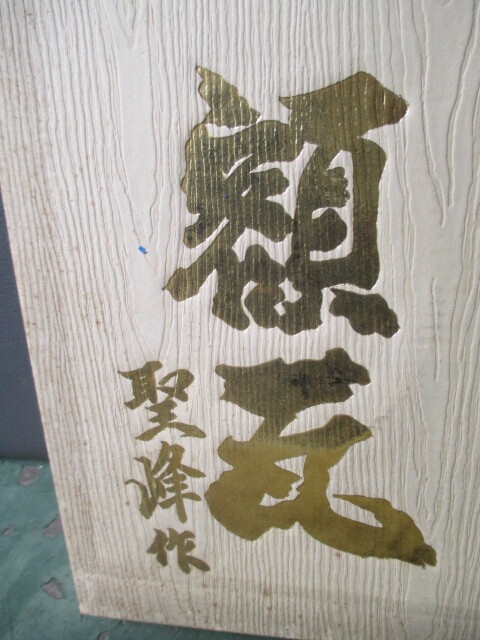 額瓦
聖峰作